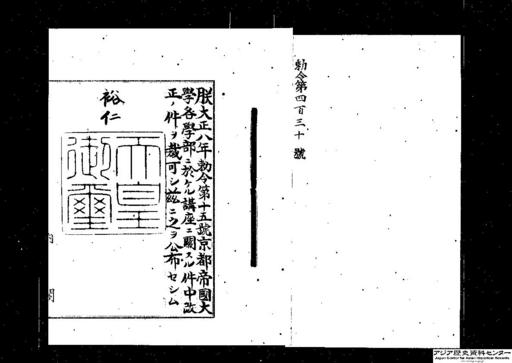 勅令第四百三十號
朕大正八年勅令第十五號京都帝國大
學各學部ニ於ケル講座ニ關スル件中改
正ノ件ヲ裁可シ茲ニ之ヲ公布セシム
裕仁
天皇
御璽
内
閣
アジア歴史資料センター
Japan Center for Asian Historical Records